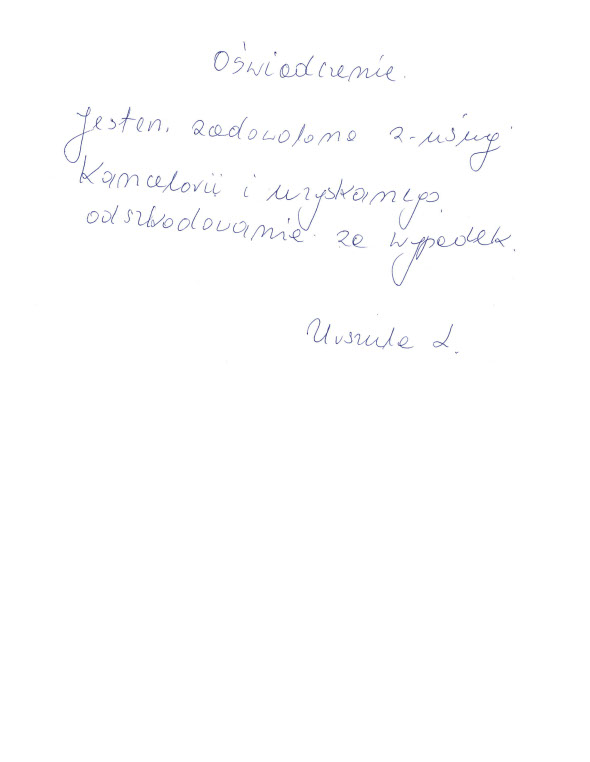 Oświadczenie.
Jestem zadowolona z usługi
Kancelarii i uzyskanego
odszkodowanie za wypadek.
Urszula L.